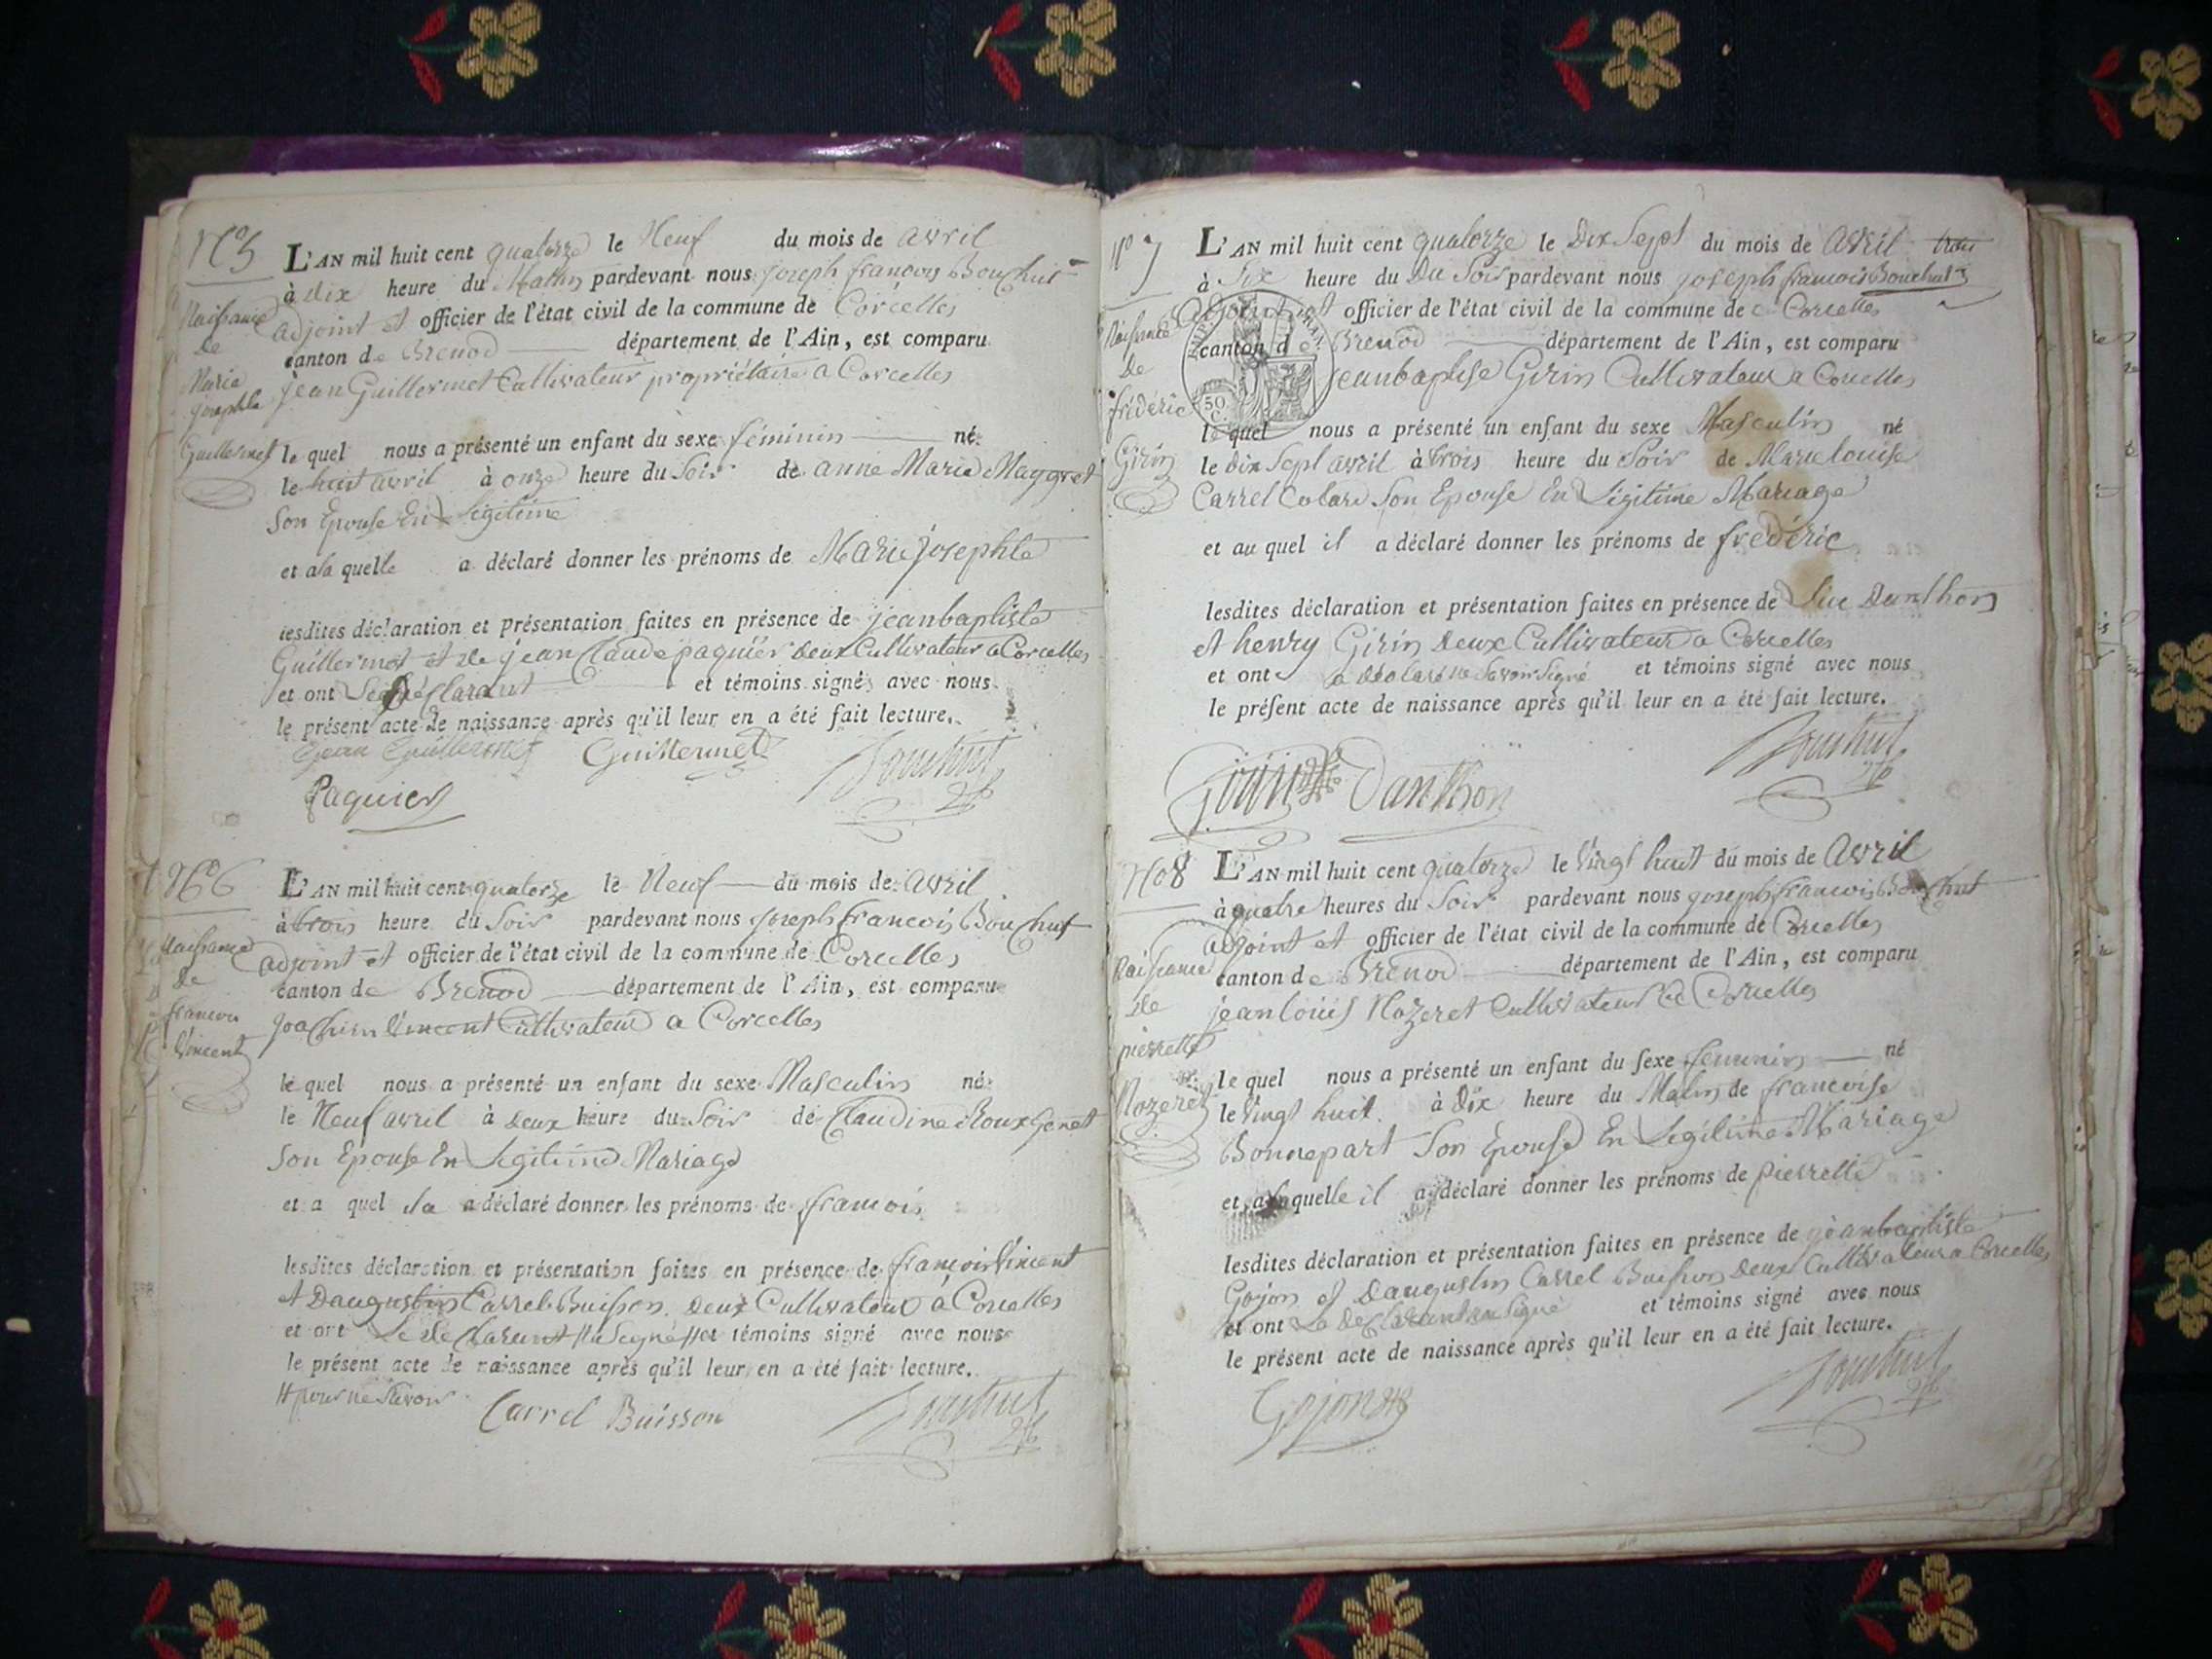 N° 5
L'AN mil huit cent quatorze le Neuf du mois de avril
à dix heure du Matin pardevant nous joseph françois Bouchut
adjoint et officier de l'état civil de la commune de Corcelles
canton de Brenod département de l'Ain, est comparu
jean Guillermet Cultivateur propriétaire a Corcelles
Naissance
de
Marie
josephte
Guillermet
le quel nous a présenté un enfant du sexe féminin né
le huit avril à onze heure du Soir de anne Marie
Son Epouse En Légitime
et a la quelle a déclaré donner les prénoms de Marie josephte
lesdites déclaration et présentation faites en présence de jeanbaptiste
Guillermet et de jean Claude paquier deux Cultivateur a Corcelles
et ont et témoins signé avec nous
le présent acte de naissance après qu'il leur en a été fait lecture.
jean Guillermet Guillermet Bouchut
Paquier
N° 6
L'AN mil huit cent quatorze le Neuf du mois de avril
à trois heure du Soir pardevant nous joseph francois Bouchut
adjoint et officier de l'état civil de la commune de Corcelles
canton de Brenod département de l'Ain, est comparu
joachim Vincent Cultivateur a Corcelles
Naissance
de
francois
Vincent
le quel nous a présenté un enfant du sexe Masculin né
le Neuf avril à deux heure du Soir de Claudine Roux Genet
Son Epouse En Légitime Mariage
et a quel a déclaré donner les prénoms de francois
lesdites déclaration et présentation faites en présence de francois Vincent
et Daugustin Carrel Buisson deux Cultivateur a Corcelles
et ont Le declarant na Signé # et témoins signé avec nous
le présent acte de naissance après qu'il leur en a été fait lecture.
# pour ne Savoir
Carrel Buisson Bouchut
N° 7
L'AN mil huit cent quatorze le Dix Sept du mois de avril trois
à Six heure du Du Soir pardevant nous joseph francois Bouchut
adjoint et officier de l'état civil de la commune de Corcelles
canton de Brenod département de l'Ain, est comparu
jeanbaptise Girin Cultivateur a Corcelles
50
C.
Naissance
de
frédéric
Girin
le quel nous a présenté un enfant du sexe Masculin né
le dix Sept avril à trois heure du Soir de Marie louise
Carrel Son Epouse En Légitime Mariage
et au quel il a déclaré donner les prénoms de frédéric
lesdites déclaration et présentation faites en présence de Danthon
et henry Girin deux Cultivateur a Corcelles
et ont a déclaré ne Savoir Signé et témoins signé avec nous
le présent acte de naissance après qu'il leur en a été fait lecture.
Girin Danthon Bouchut
N° 8
L'AN mil huit cent quatorze le Vingt huit du mois de Avril
à quatre heures du Soir pardevant nous joseph francois Bouchut
adjoint et officier de l'état civil de la commune de Corcelles
canton de Brenod département de l'Ain, est comparu
jean louis Nozeret Cultivateur a Corcelles
Naissance
de
pierrette
Nozeret
le quel nous a présenté un enfant du sexe feminin né
le Vingt huit à Dix heure du Matin de francoise
Bonnepart Son Epouse En Légitime Mariage
et a la quelle il a déclaré donner les prénoms de pierrette
lesdites déclaration et présentation faites en présence de jeanbaptiste
Gojon et Daugustin Carrel Buisson deux Cultivateur a Corcelles
et ont Le declarant na Signé et témoins signé avec nous
le présent acte de naissance après qu'il leur en a été fait lecture.
Gojon Bouchut